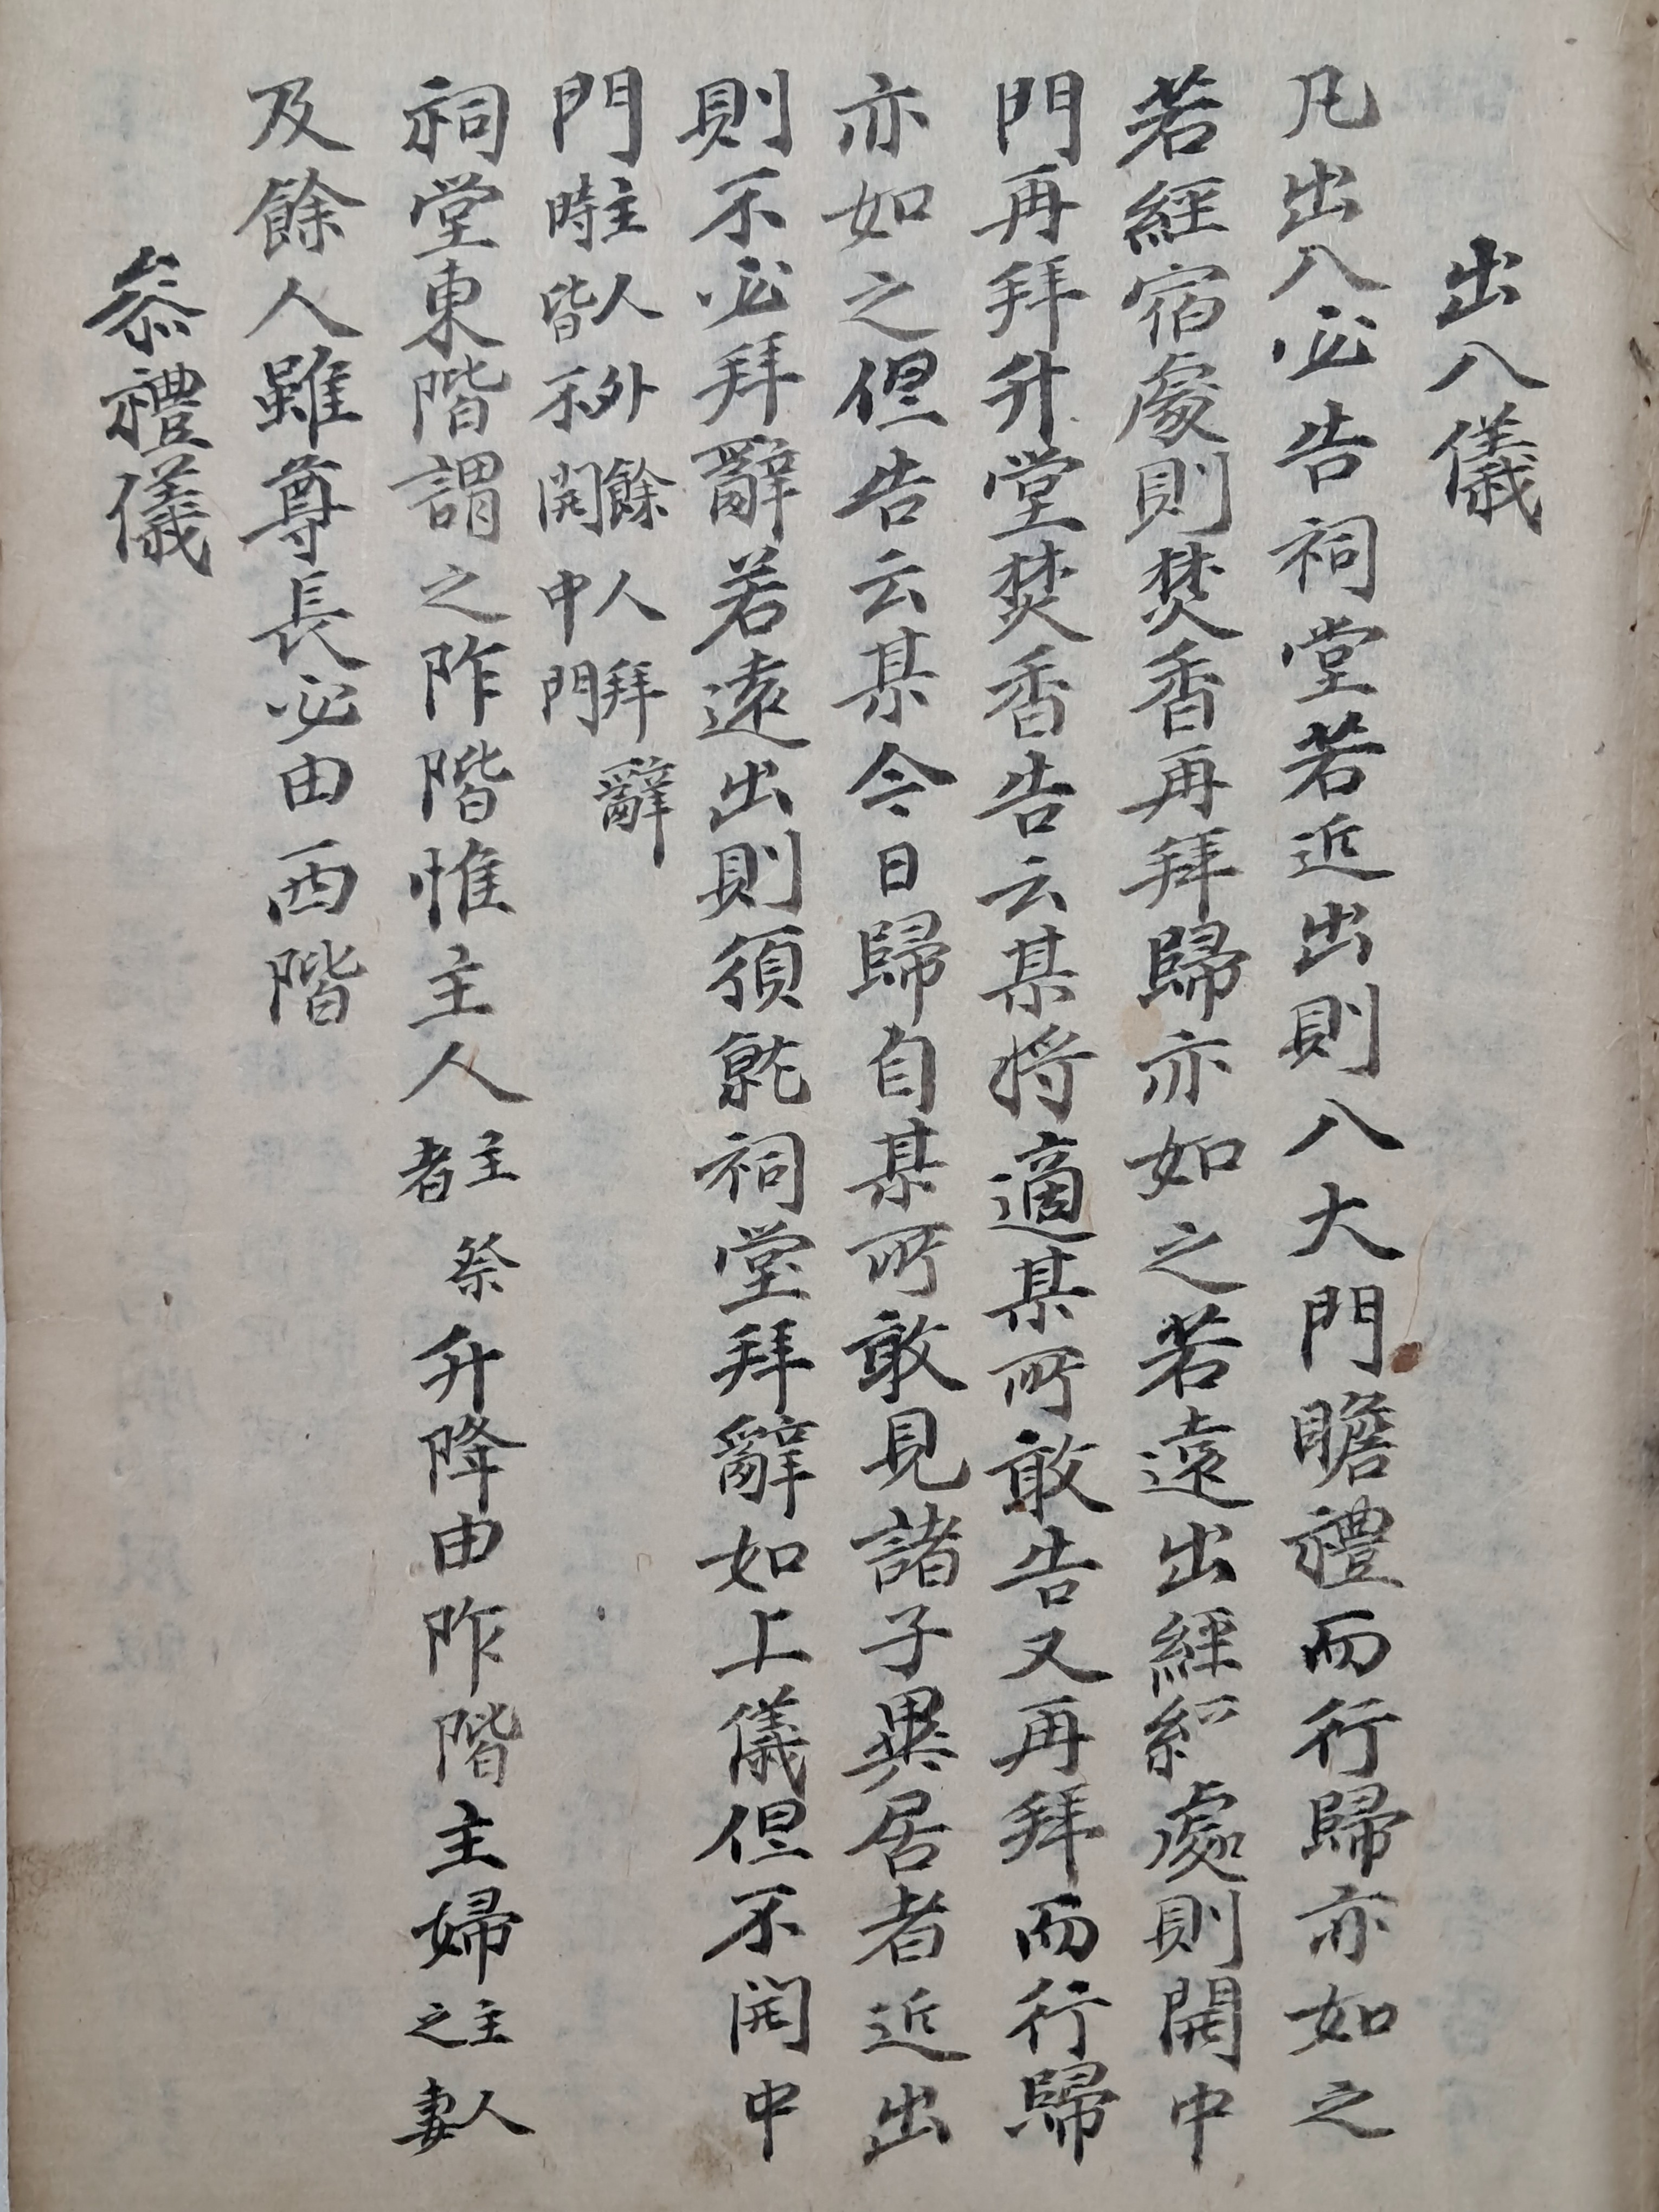 出入儀
凡出入必告祠堂若近出則入大門瞻禮而行歸亦如之
若經宿處則焚香再拜歸亦如之若遠出經旬處則開中
門再拜升堂焚香告云某將適某所敢告又再拜而行歸
亦如之但告云某今日歸自某所敢見諸子異居者近出
則不必拜辭若遠出則須就祠堂拜辭如上儀但不開中
門主人外餘人拜辭時皆不開中門
祠堂東階謂之阼階惟主人主祭者升降由阼階主婦主人之妻
及餘人雖尊長必由西階
叅禮儀